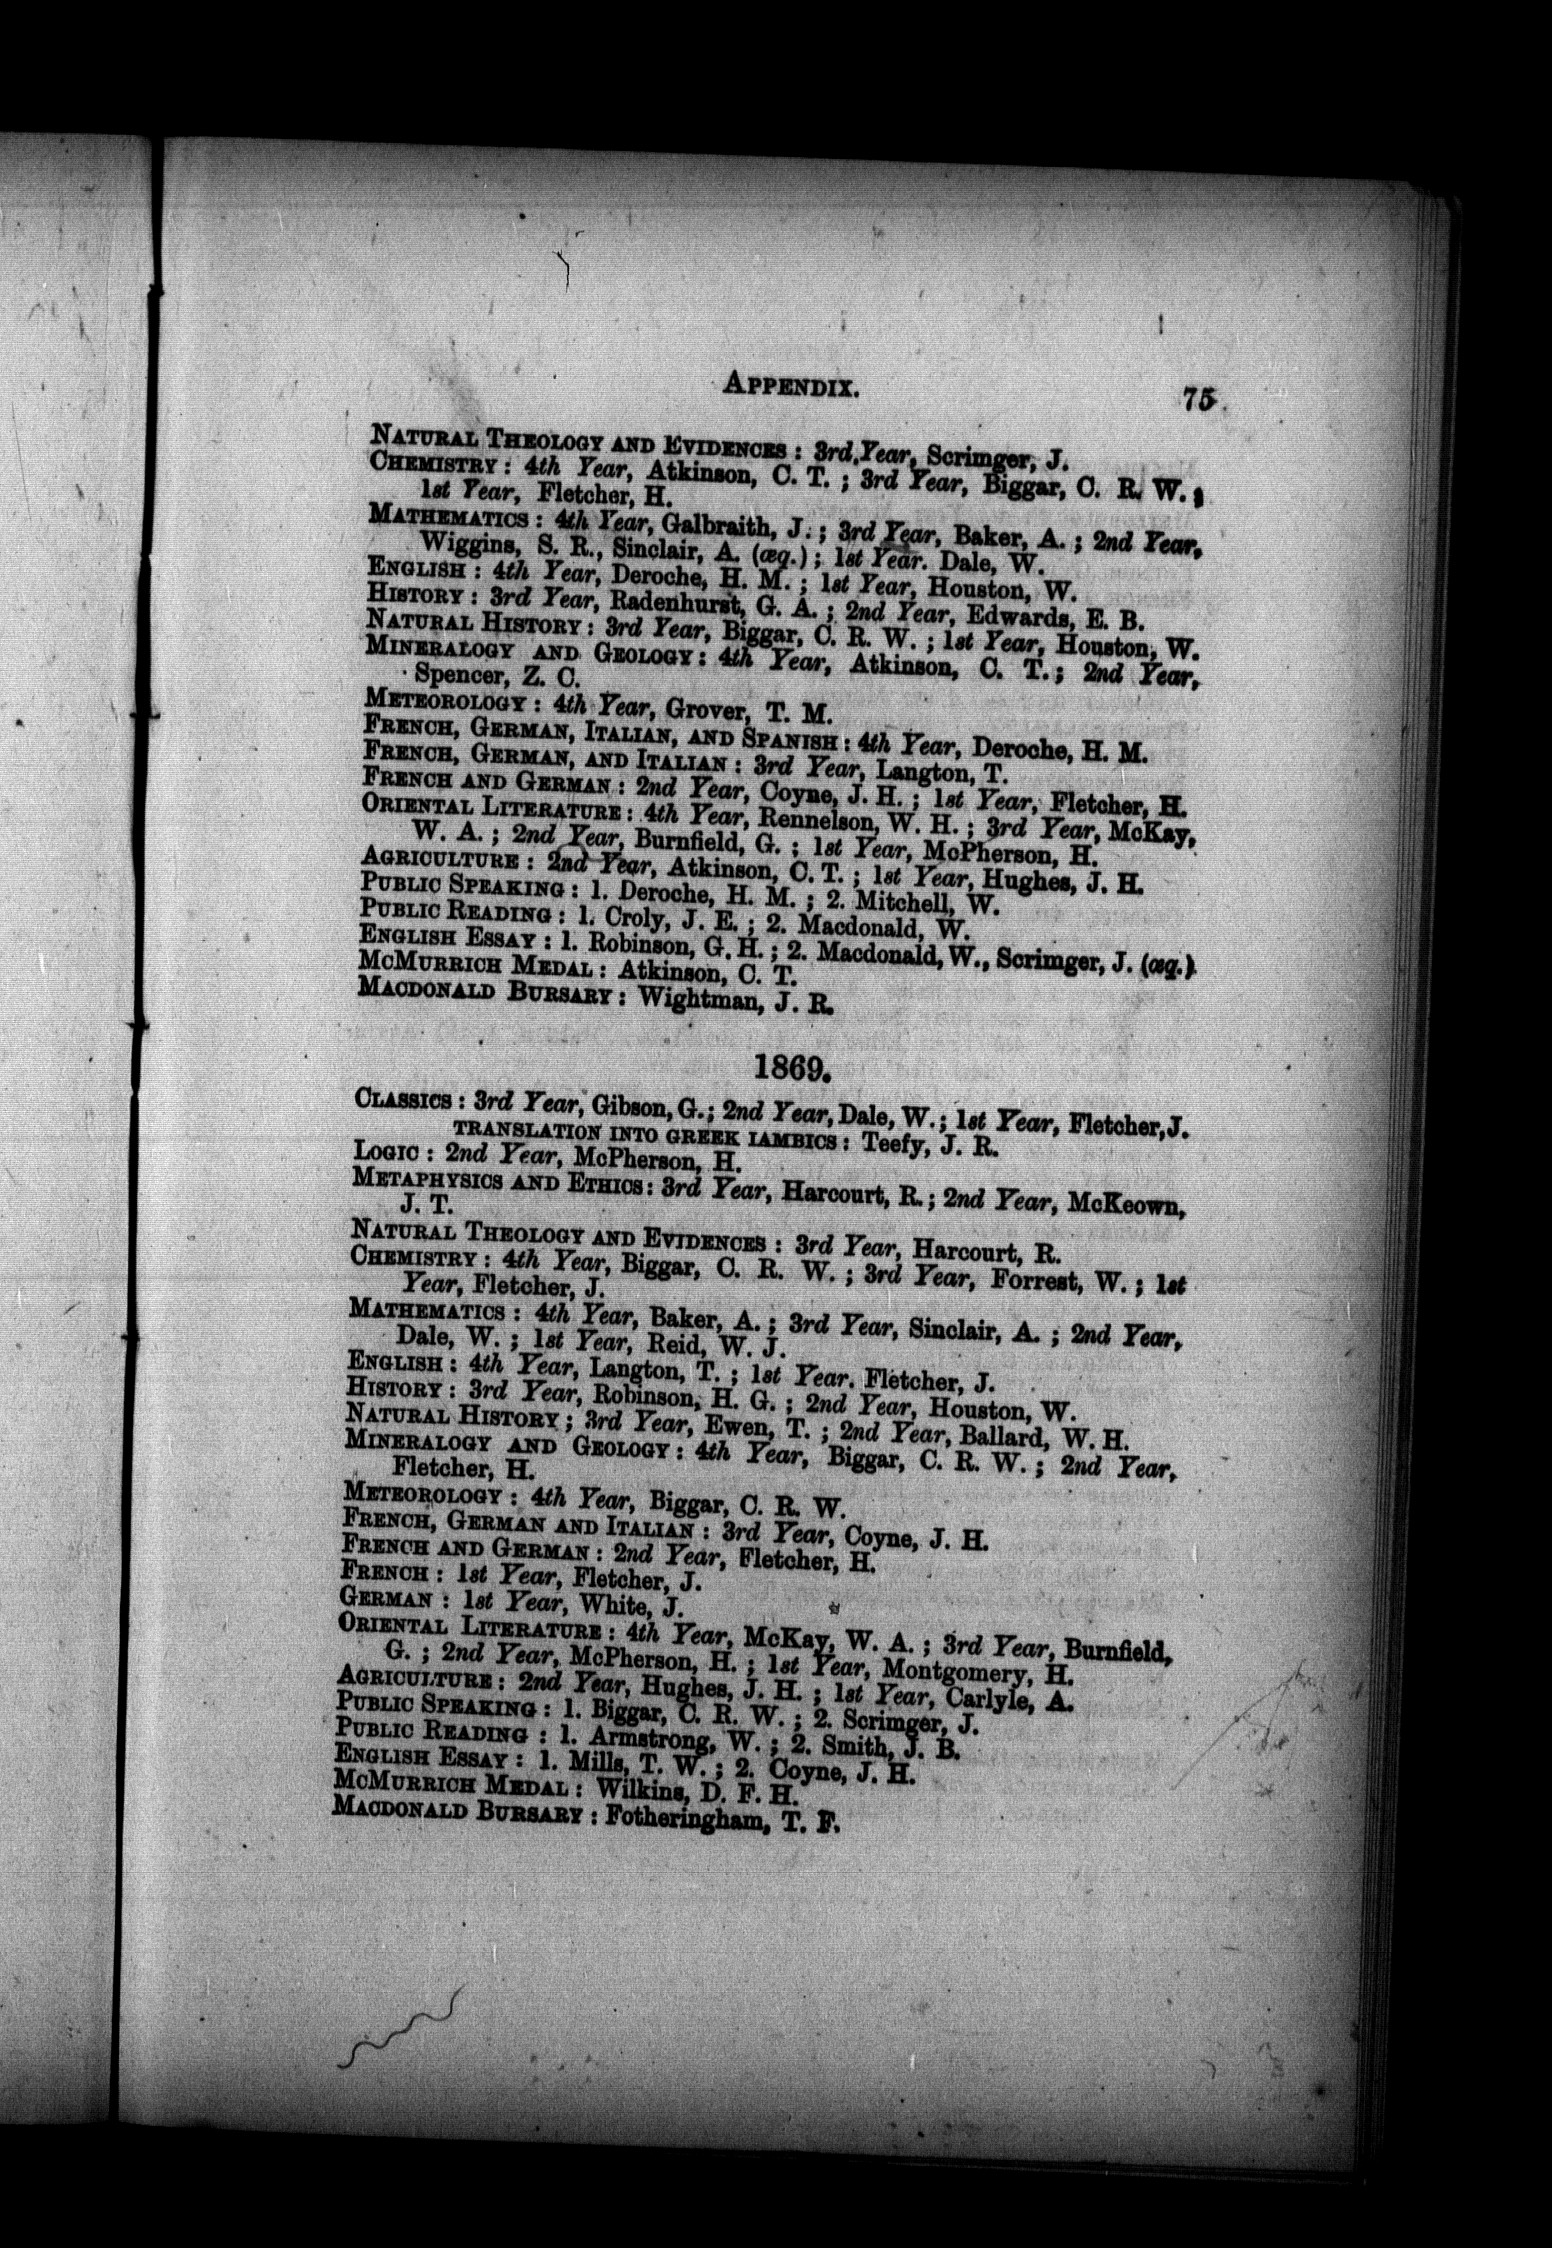 APPENDIX.
75
NATURAL THEOLOGY AND EVIDENCES : 3rd Year, Scrimger, J.
CHEMISTRY : 4th Year, Atkinson, C. T. ; 3rd Year, Biggar, C. R. W. ;
1st Year, Fletcher, H.
MATHEMATICS : 4th Year, Galbraith, J. ; 3rd Year, Baker, A. ; 2nd Year,
Wiggins, S. R., Sinclair, A. (æq.) ; 1st Year. Dale, W.
ENGLISH : 4th Year, Deroche, H. M. ; 1st Year, Houston, W.
HISTORY : 3rd Year, Radenhurst, G. A. ; 2nd Year, Edwards, E. B.
NATURAL HISTORY : 3rd Year, Biggar, C. R. W. ; 1st Year, Houston, W.
MINERALOGY AND GEOLOGY : 4th Year, Atkinson, C. T. ; 2nd Year,
Spencer, Z. C.
METEOROLOGY : 4th Year, Grover, T. M.
FRENCH, GERMAN, ITALIAN, AND SPANISH : 4th Year, Deroche, H. M.
FRENCH, GERMAN, AND ITALIAN : 3rd Year, Langton, T.
FRENCH AND GERMAN : 2nd Year, Coyne, J. H. ; 1st Year, Fletcher, H.
ORIENTAL LITERATURE : 4th Year, Rennelson, W. H. ; 3rd Year, McKay,
W. A. ; 2nd Year, Burnfield, G. ; 1st Year, McPherson, H.
AGRICULTURE : 2nd Year, Atkinson, C. T. ; 1st Year, Hughes, J. H.
PUBLIC SPEAKING : 1. Deroche, H. M. ; 2. Mitchell, W.
PUBLIC READING : 1. Croly, J. E. ; 2. Macdonald, W.
ENGLISH ESSAY : 1. Robinson, G. H. ; 2. Macdonald, W., Scrimger, J. (æq.)
MCMURRICH MEDAL : Atkinson, C. T.
MACDONALD BURSARY : Wightman, J. R.
1869.
CLASSICS : 3rd Year, Gibson, G. ; 2nd Year, Dale, W. ; 1st Year, Fletcher, J.
TRANSLATION INTO GREEK IAMBICS : Teefy, J. R.
LOGIC : 2nd Year, McPherson, H.
METAPHYSICS AND ETHICS : 3rd Year, Harcourt, R. ; 2nd Year, McKeown,
J. T.
NATURAL THEOLOGY AND EVIDENCES : 3rd Year, Harcourt, R.
CHEMISTRY : 4th Year, Biggar, C. R. W. ; 3rd Year, Forrest, W. ; 1st
Year, Fletcher, J.
MATHEMATICS : 4th Year, Baker, A. ; 3rd Year, Sinclair, A. ; 2nd Year,
Dale, W. ; 1st Year, Reid, W. J.
ENGLISH : 4th Year, Langton, T. ; 1st Year. Fletcher, J.
HISTORY : 3rd Year, Robinson, H. G. ; 2nd Year, Houston, W.
NATURAL HISTORY ; 3rd Year, Ewen, T. ; 2nd Year, Ballard, W. H.
MINERALOGY AND GEOLOGY : 4th Year, Biggar, C. R. W. ; 2nd Year,
Fletcher, H.
METEOROLOGY : 4th Year, Biggar, C. R. W.
FRENCH, GERMAN AND ITALIAN : 3rd Year, Coyne, J. H.
FRENCH AND GERMAN : 2nd Year, Fletcher, H.
FRENCH : 1st Year, Fletcher, J.
GERMAN : 1st Year, White, J.
ORIENTAL LITERATURE : 4th Year, McKay, W. A. ; 3rd Year, Burnfield,
G. ; 2nd Year, McPherson, H. ; 1st Year, Montgomery, H.
AGRICULTURE : 2nd Year, Hughes, J. H. ; 1st Year, Carlyle, A.
PUBLIC SPEAKING : 1. Biggar, C. R. W. ; 2. Scrimger, J.
PUBLIC READING : 1. Armstrong, W. ; 2. Smith, J. B.
ENGLISH ESSAY : 1. Mills, T. W. ; 2. Coyne, J. H.
MCMURRICH MEDAL : Wilkins, D. F. H.
MACDONALD BURSARY : Fotheringham, T. F.